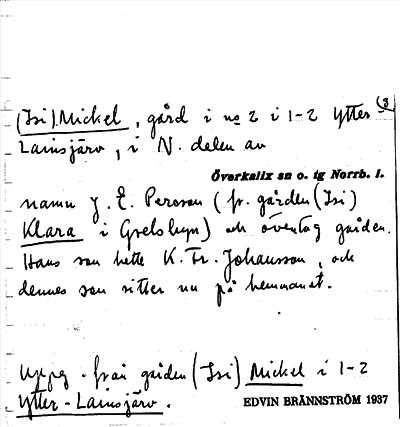 3
(Isi) Mickel, gård i no 2 i 1-2 Ytter
Lainsjärv, i N. delen av
Överkalix sn o. tg Norrb. l.
namn J. E. Persson (fr. gården (Isi)
Klara i Grelsbyn) och övertog gården.
Hans son hette K. Fr. Johansson, och
dennes son sitter nu på hemmanet.
Uppg. från gården (Isi) Mickel i 1-2
Ytter-Lainsjärv.
EDVIN BRÄNNSTRÖM 1937